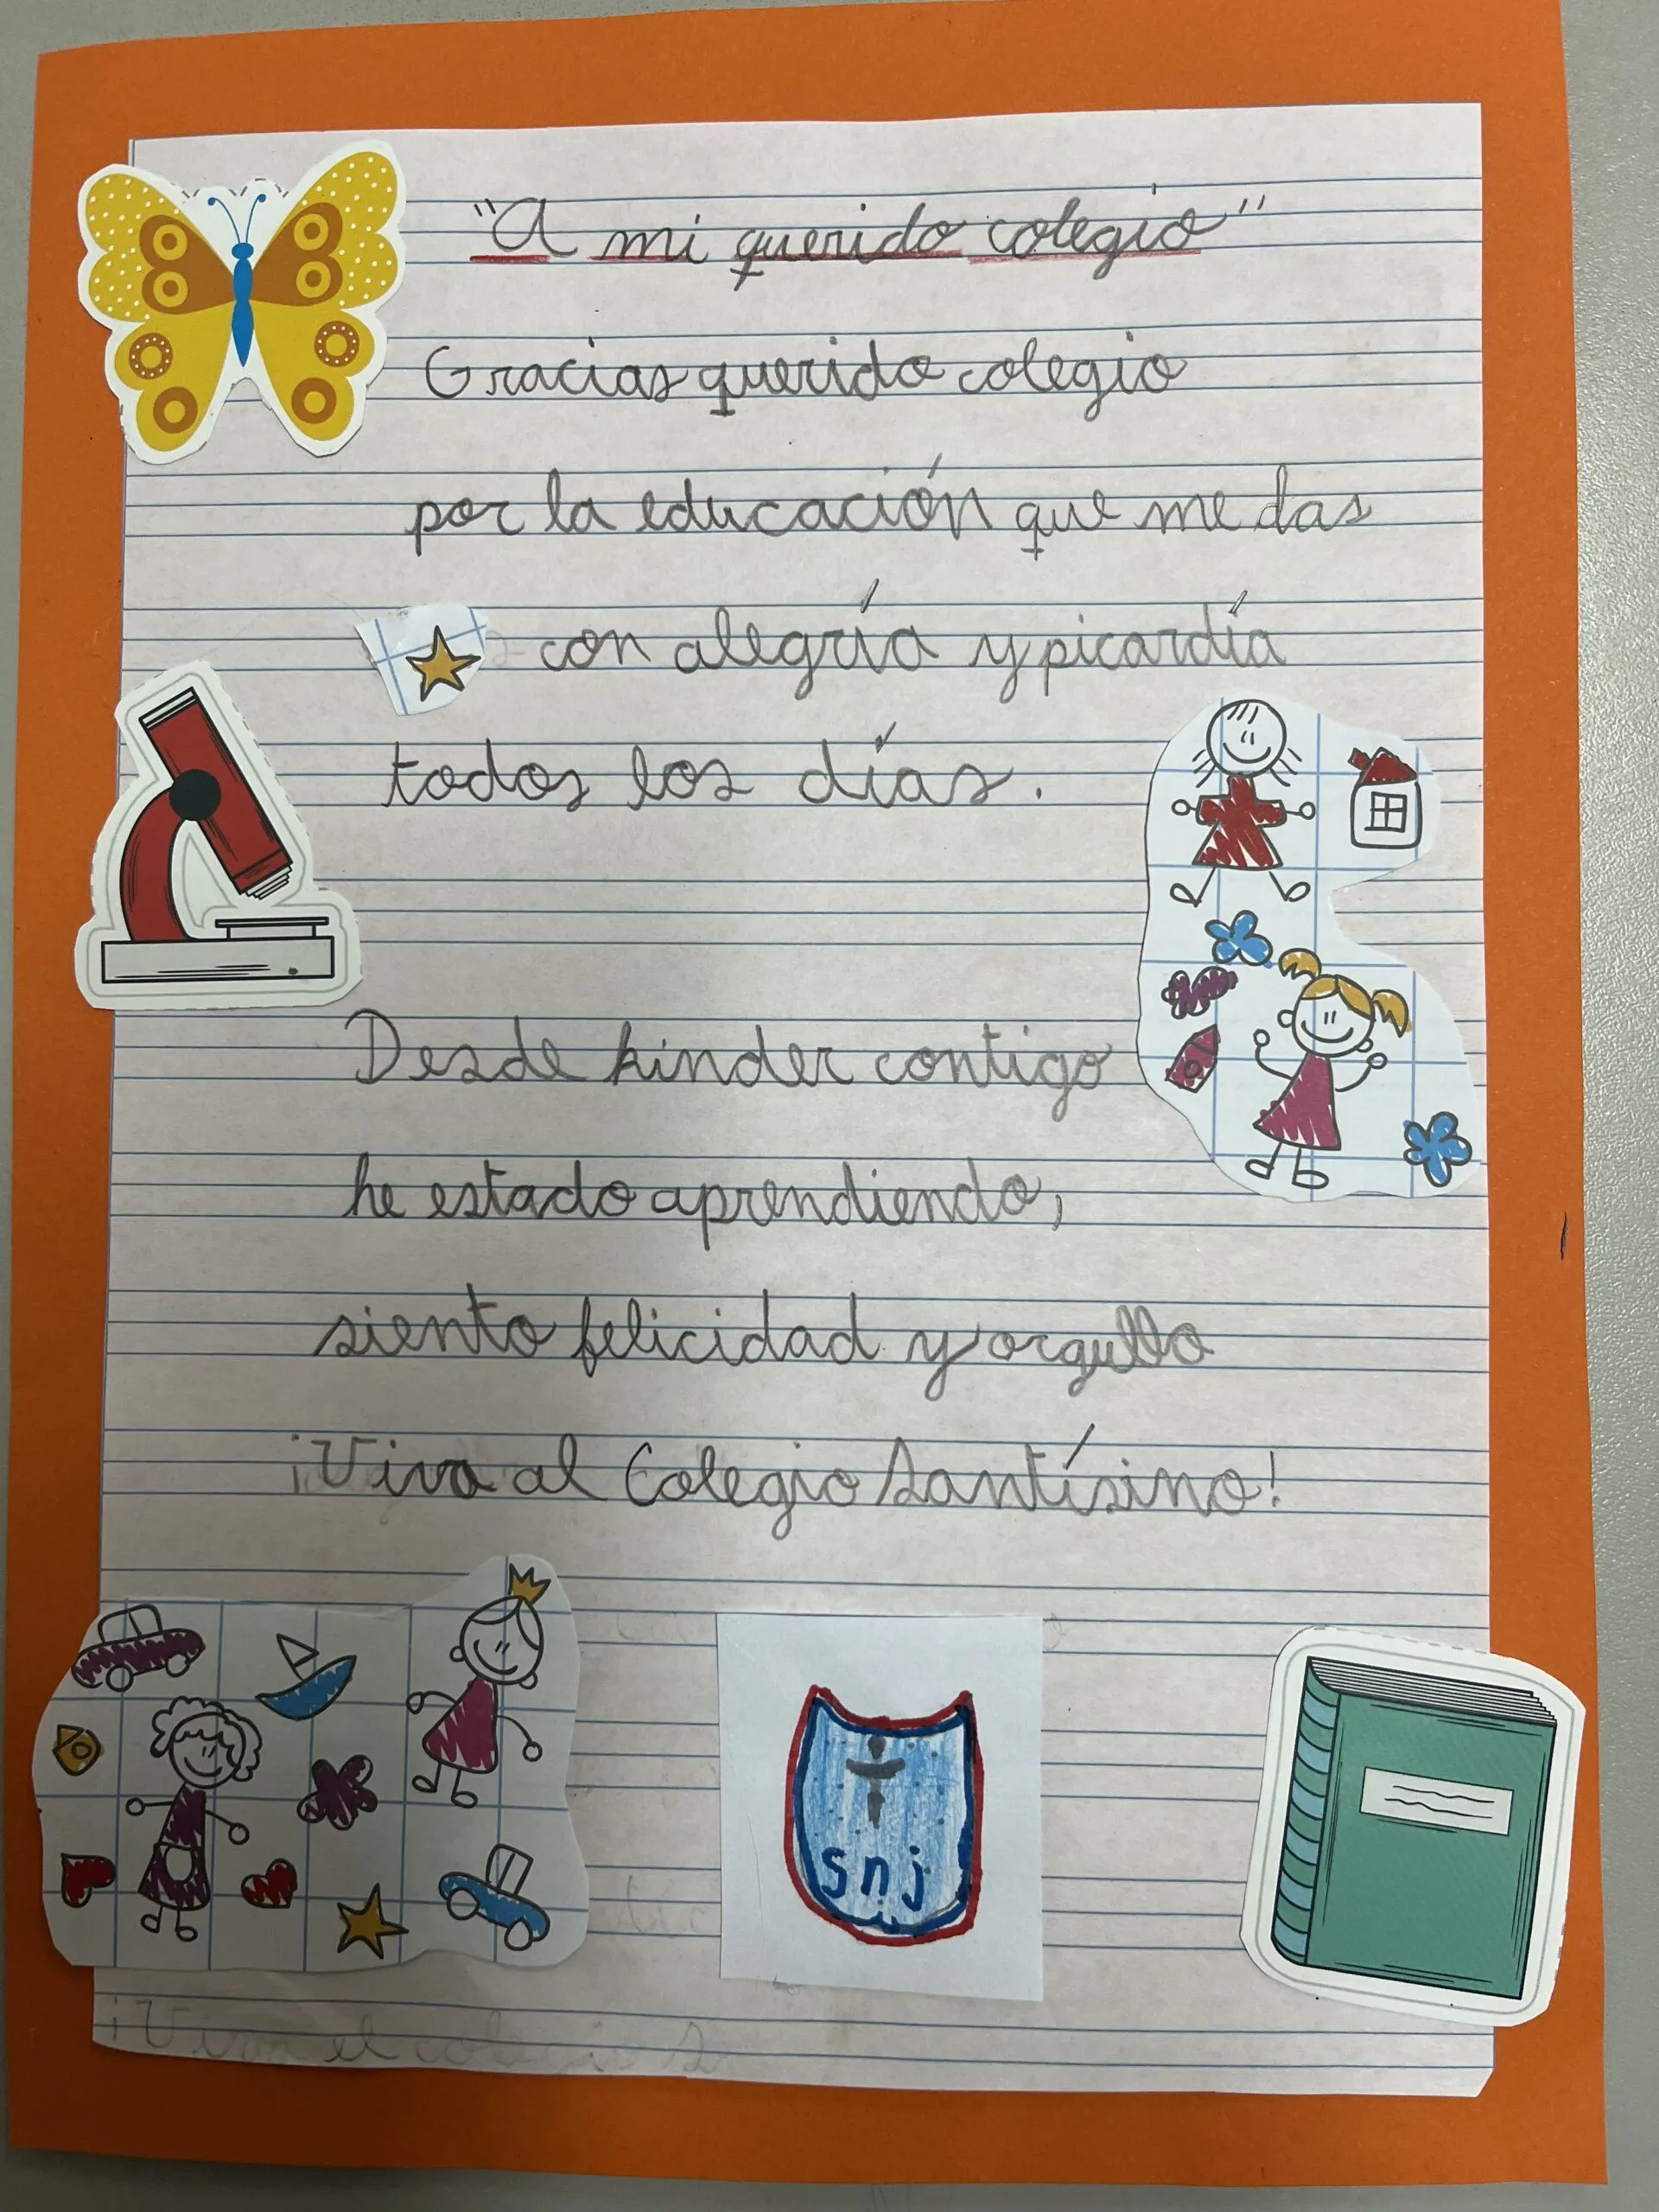 "A mi querido colegio"
Gracias querido colegio
por la educación que me das
con alegría y picardía
todos los días.
Desde kinder contigo
he estado aprendiendo,
siento felicidad y orgullo
¡Viva al Colegio Santísino!
snj
¡Viva el colegio S